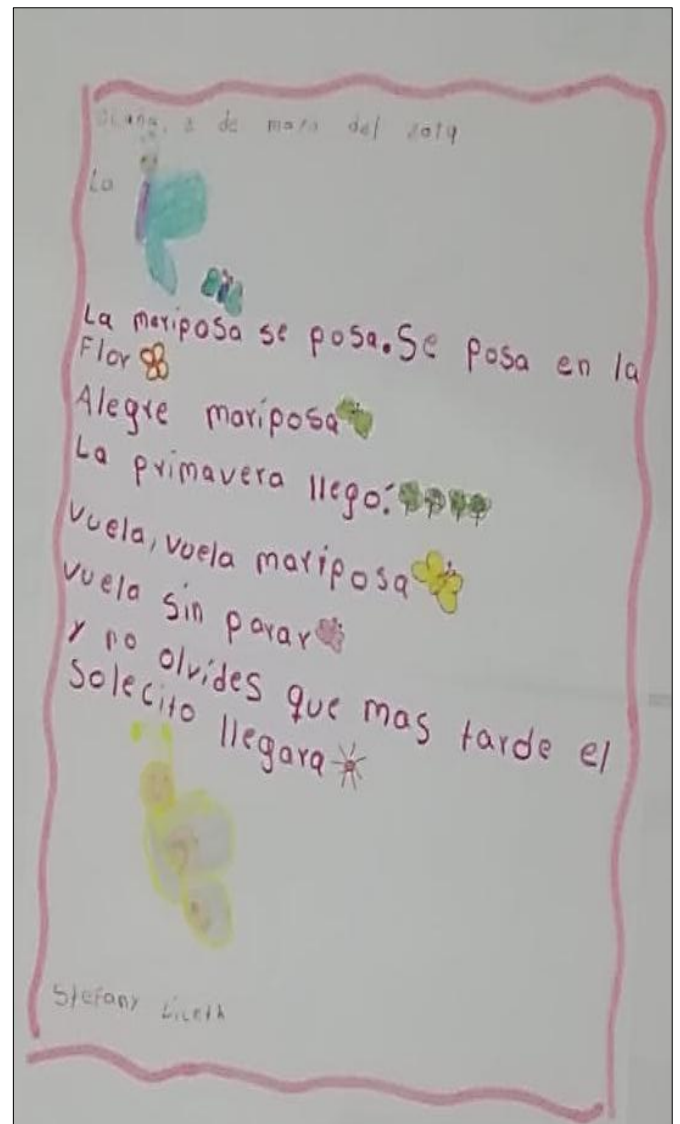 Ocaña, 2 de mayo del 2019
La
La mariposa se posa. Se posa en la
Flor
Alegre mariposa
La primavera llego:
Vuela, vuela mariposa
Vuela sin parar
y no olvides que mas tarde el
Solecito llegara
Stefany Liceth